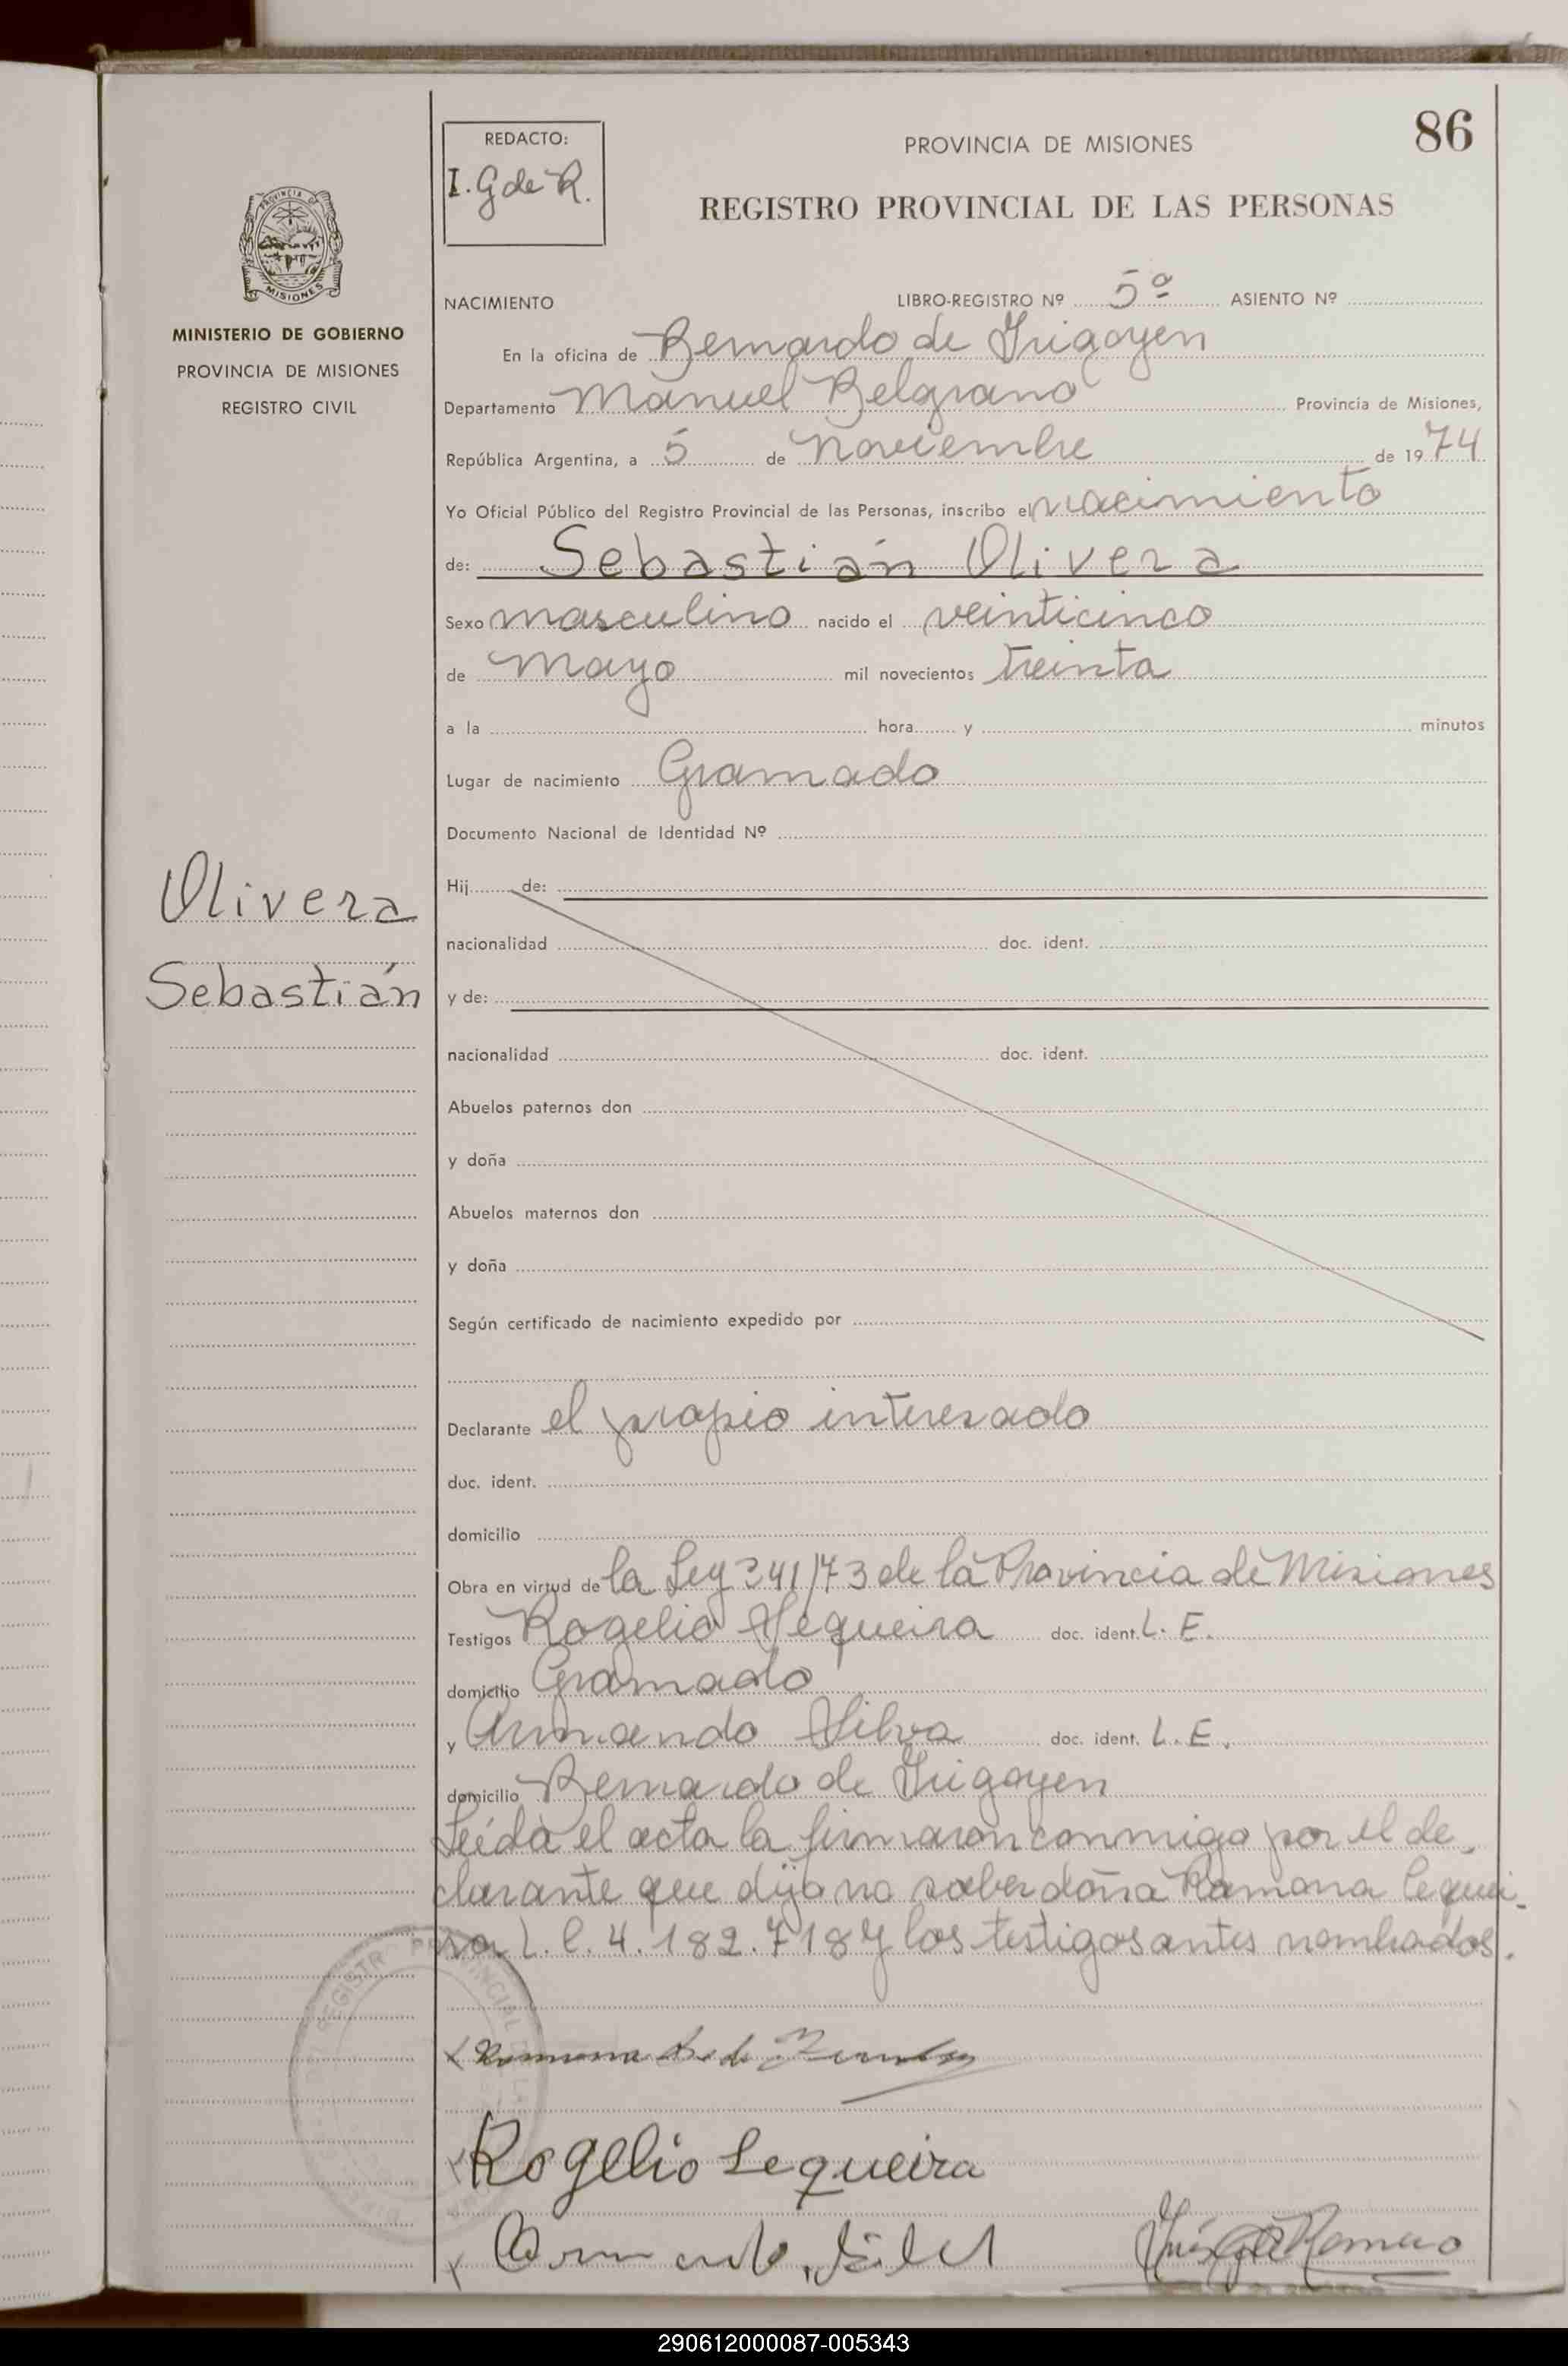 86
REDACTO:
I. G de R.
PROVINCIA DE MISIONES
REGISTRO PROVINCIAL DE LAS PERSONAS
PROVINCIA DE
MISIONES
MINISTERIO DE GOBIERNO
PROVINCIA DE MISIONES
REGISTRO CIVIL
NACIMIENTO LIBRO-REGISTRO Nº 5º ASIENTO Nº
En la oficina de Bernardo de Irigoyen
Departamento Manuel Belgrano Provincia de Misiones,
República Argentina, a 5 de Noviembre de 1974
Yo Oficial Público del Registro Provincial de las Personas, inscribo el nacimiento
de: Sebastián Olivera
Sexo masculino nacido el veinticinco
de Mayo mil novecientos treinta
a la hora y minutos
Lugar de nacimiento Gramado
Documento Nacional de Identidad Nº
Olivera
Sebastián
Hij de:
nacionalidad doc. ident.
y de:
nacionalidad doc. ident.
Abuelos paternos don
y doña
Abuelos maternos don
y doña
Según certificado de nacimiento expedido por
Declarante el propio interesado
doc. ident.
domicilio
Obra en virtud de la Ley 341/73 de la Provincia de Misiones
Testigos Rogelio Sequeira doc. ident. L. E.
domicilio Gramado
y Armando Silva doc. ident. L. E.
domicilio Bernardo de Irigoyen
Leída el acta la firmaron conmigo por el de
clarante que dijo no saber doña Ramona Cequei-
ra L. C. 4.182.718 y los testigos antes nombrados.
Ramona
Rogelio Sequeira
Armando Silva
Romero
290612000087-005343